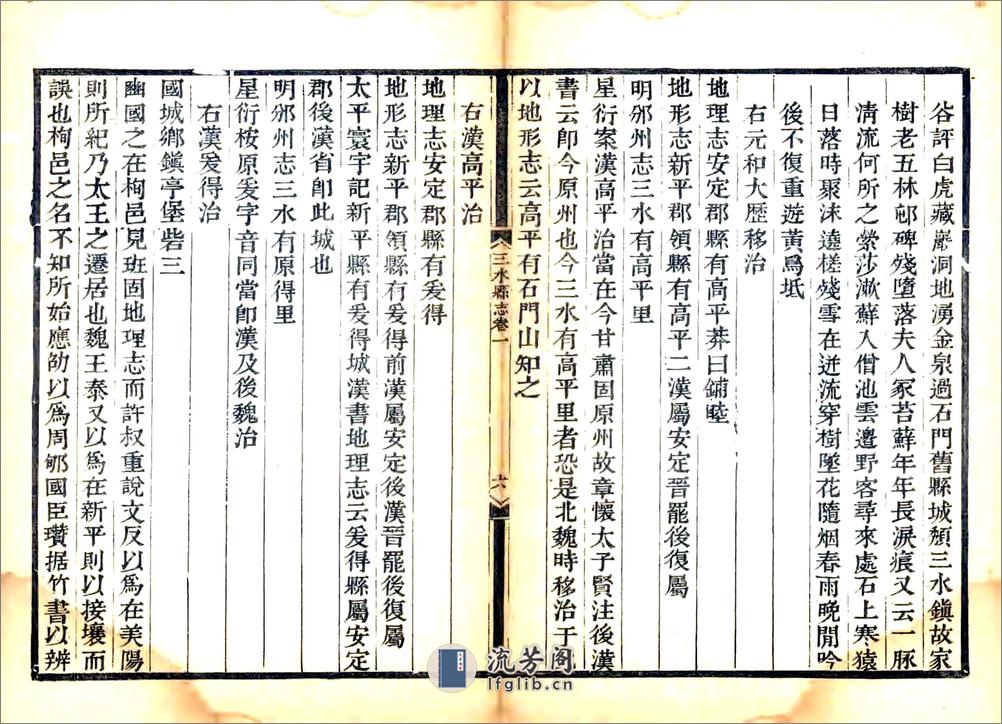 谷評白虎藏巖洞地湧金泉過石門舊縣城頹三水鎮故家
樹老五林邨碑殘墮落夫人冢苔蘚年年長淚痕又云一豚
清流何所之縈莎漱蘚入僧池雲邊野客尋來處石上寒猿
日落時聚沫遶槎殘雪在迸流穿樹墜花隨烟春雨晚閒吟
後不復重遊黃爲坻
右元和大歷移治
地理志安定郡縣有高平莽曰鋪睦
地形志新平郡領縣有高平二漢屬安定晉罷後復屬
明邠州志三水有高平里
星衍案漢高平治當在今甘肅固原州故章懷太子賢注後漢
書云卽今原州也今三水有高平里者恐是北魏時移治于此
以地形志云高平有石門山知之
右漢高平治
三水縣志卷一
六
地理志安定郡縣有爰得
地形志新平郡領縣有爰得前漢屬安定後漢晉罷後復屬
太平寰宇記新平縣有爰得城漢書地理志云爰得縣屬安定
郡後漢省卽此城也
明邠州志三水有原得里
星衍桉原爰字音同當卽漢及後魏治
右漢爰得治
國城鄉鎭亭堡砦三
豳國之在栒邑見班固地理志而許叔重說文反以爲在美陽
則所紀乃太王之遷居也魏王泰又以爲在新平則以接壤而
誤也栒邑之名不知所始應劭以爲周郇國臣瓚据竹書以辨
流芳阁
lfglib.cn